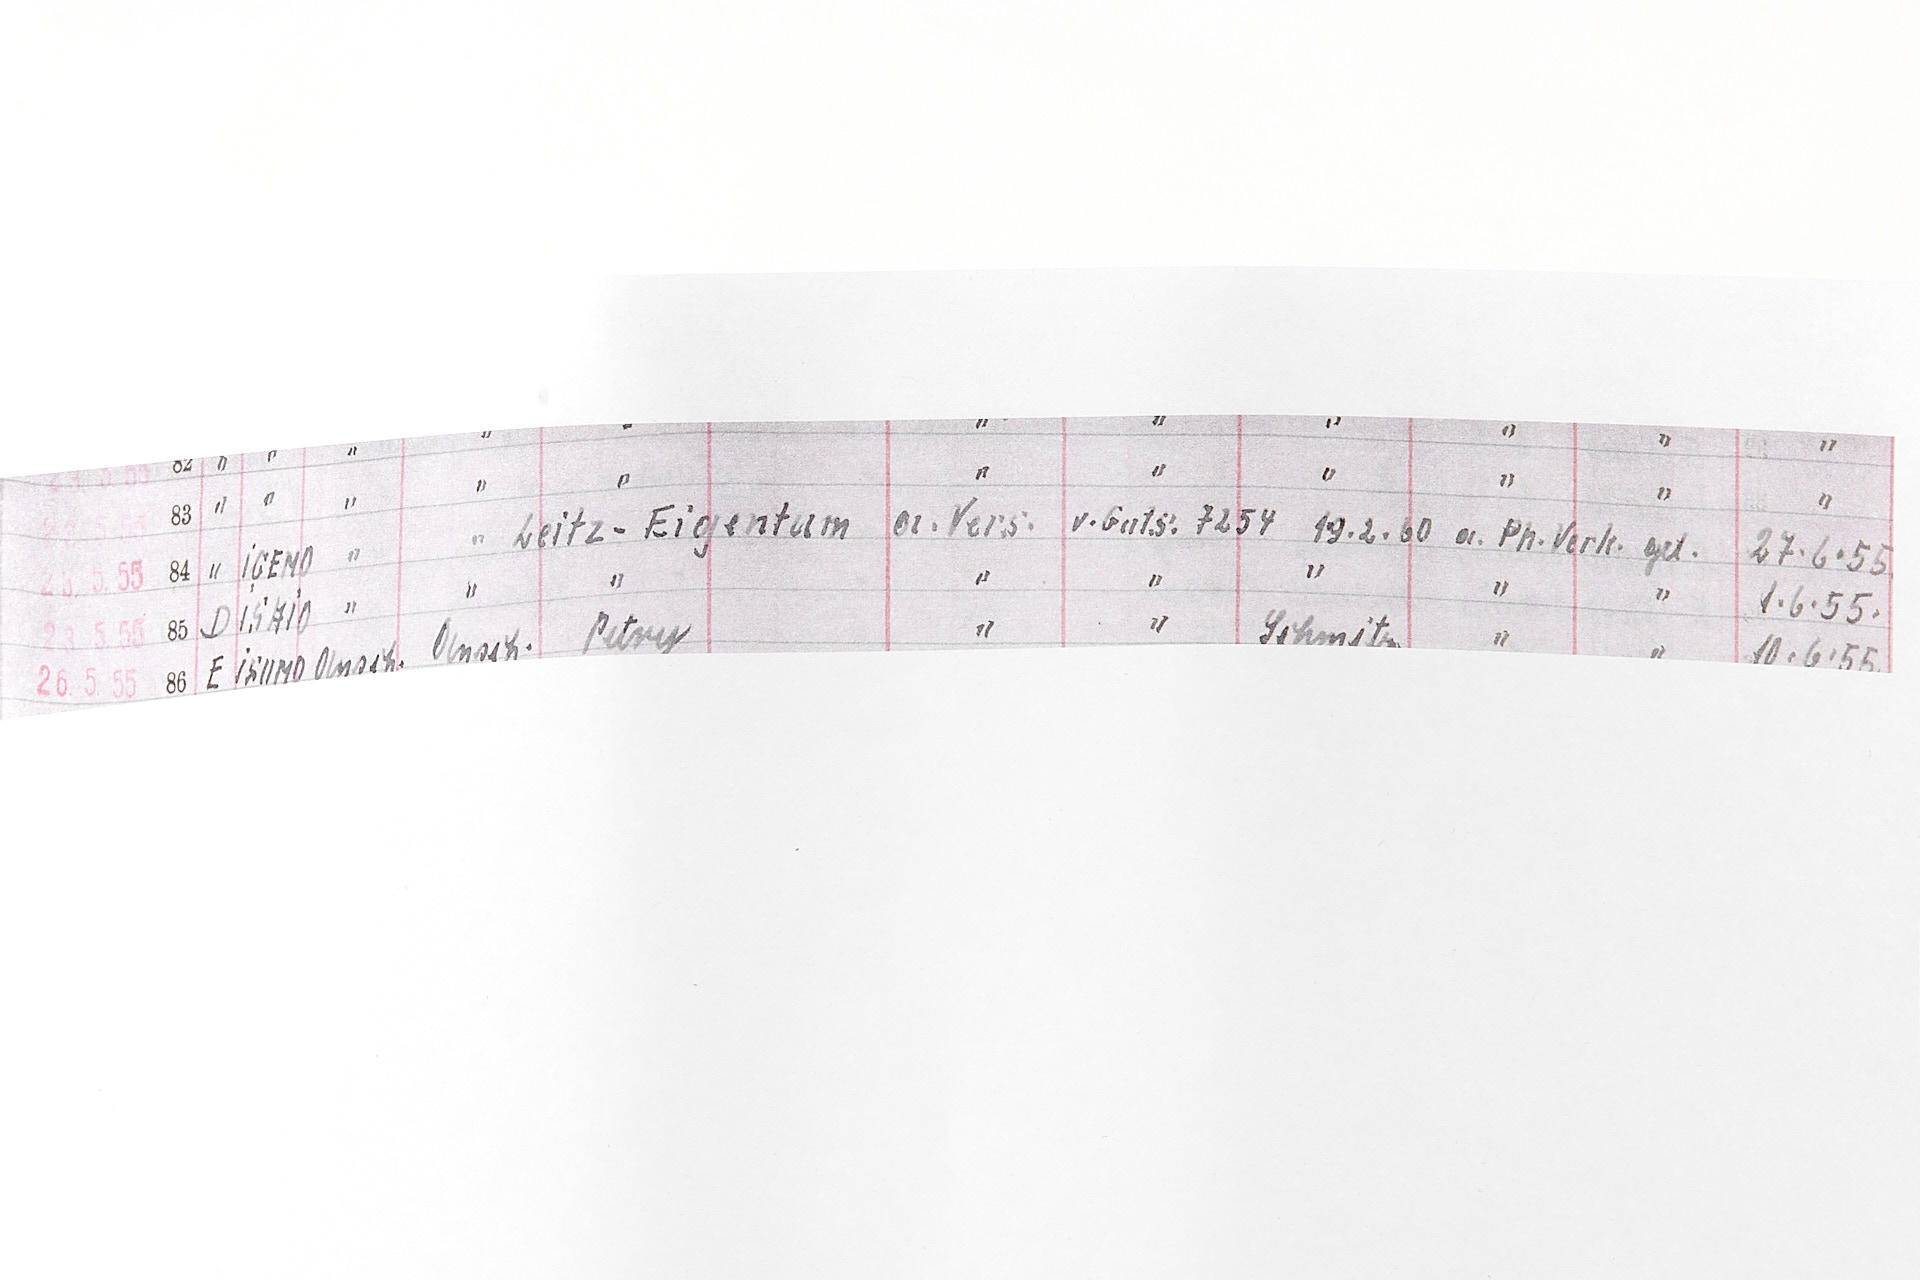 82 " " " " " " " " " " "
83 " " " " " " " " " " "
23.5.55 84 " IGEMO " " Leitz-Eigentum a. Vers. v. Guts. 7254 19.2.60 a. Ph. Verk. gel. 27.6.55
23.5.55 85 D " " " " " " " " 1.6.55.
26.5.55 86 E Petry " " Schmitz " " 10.6.55